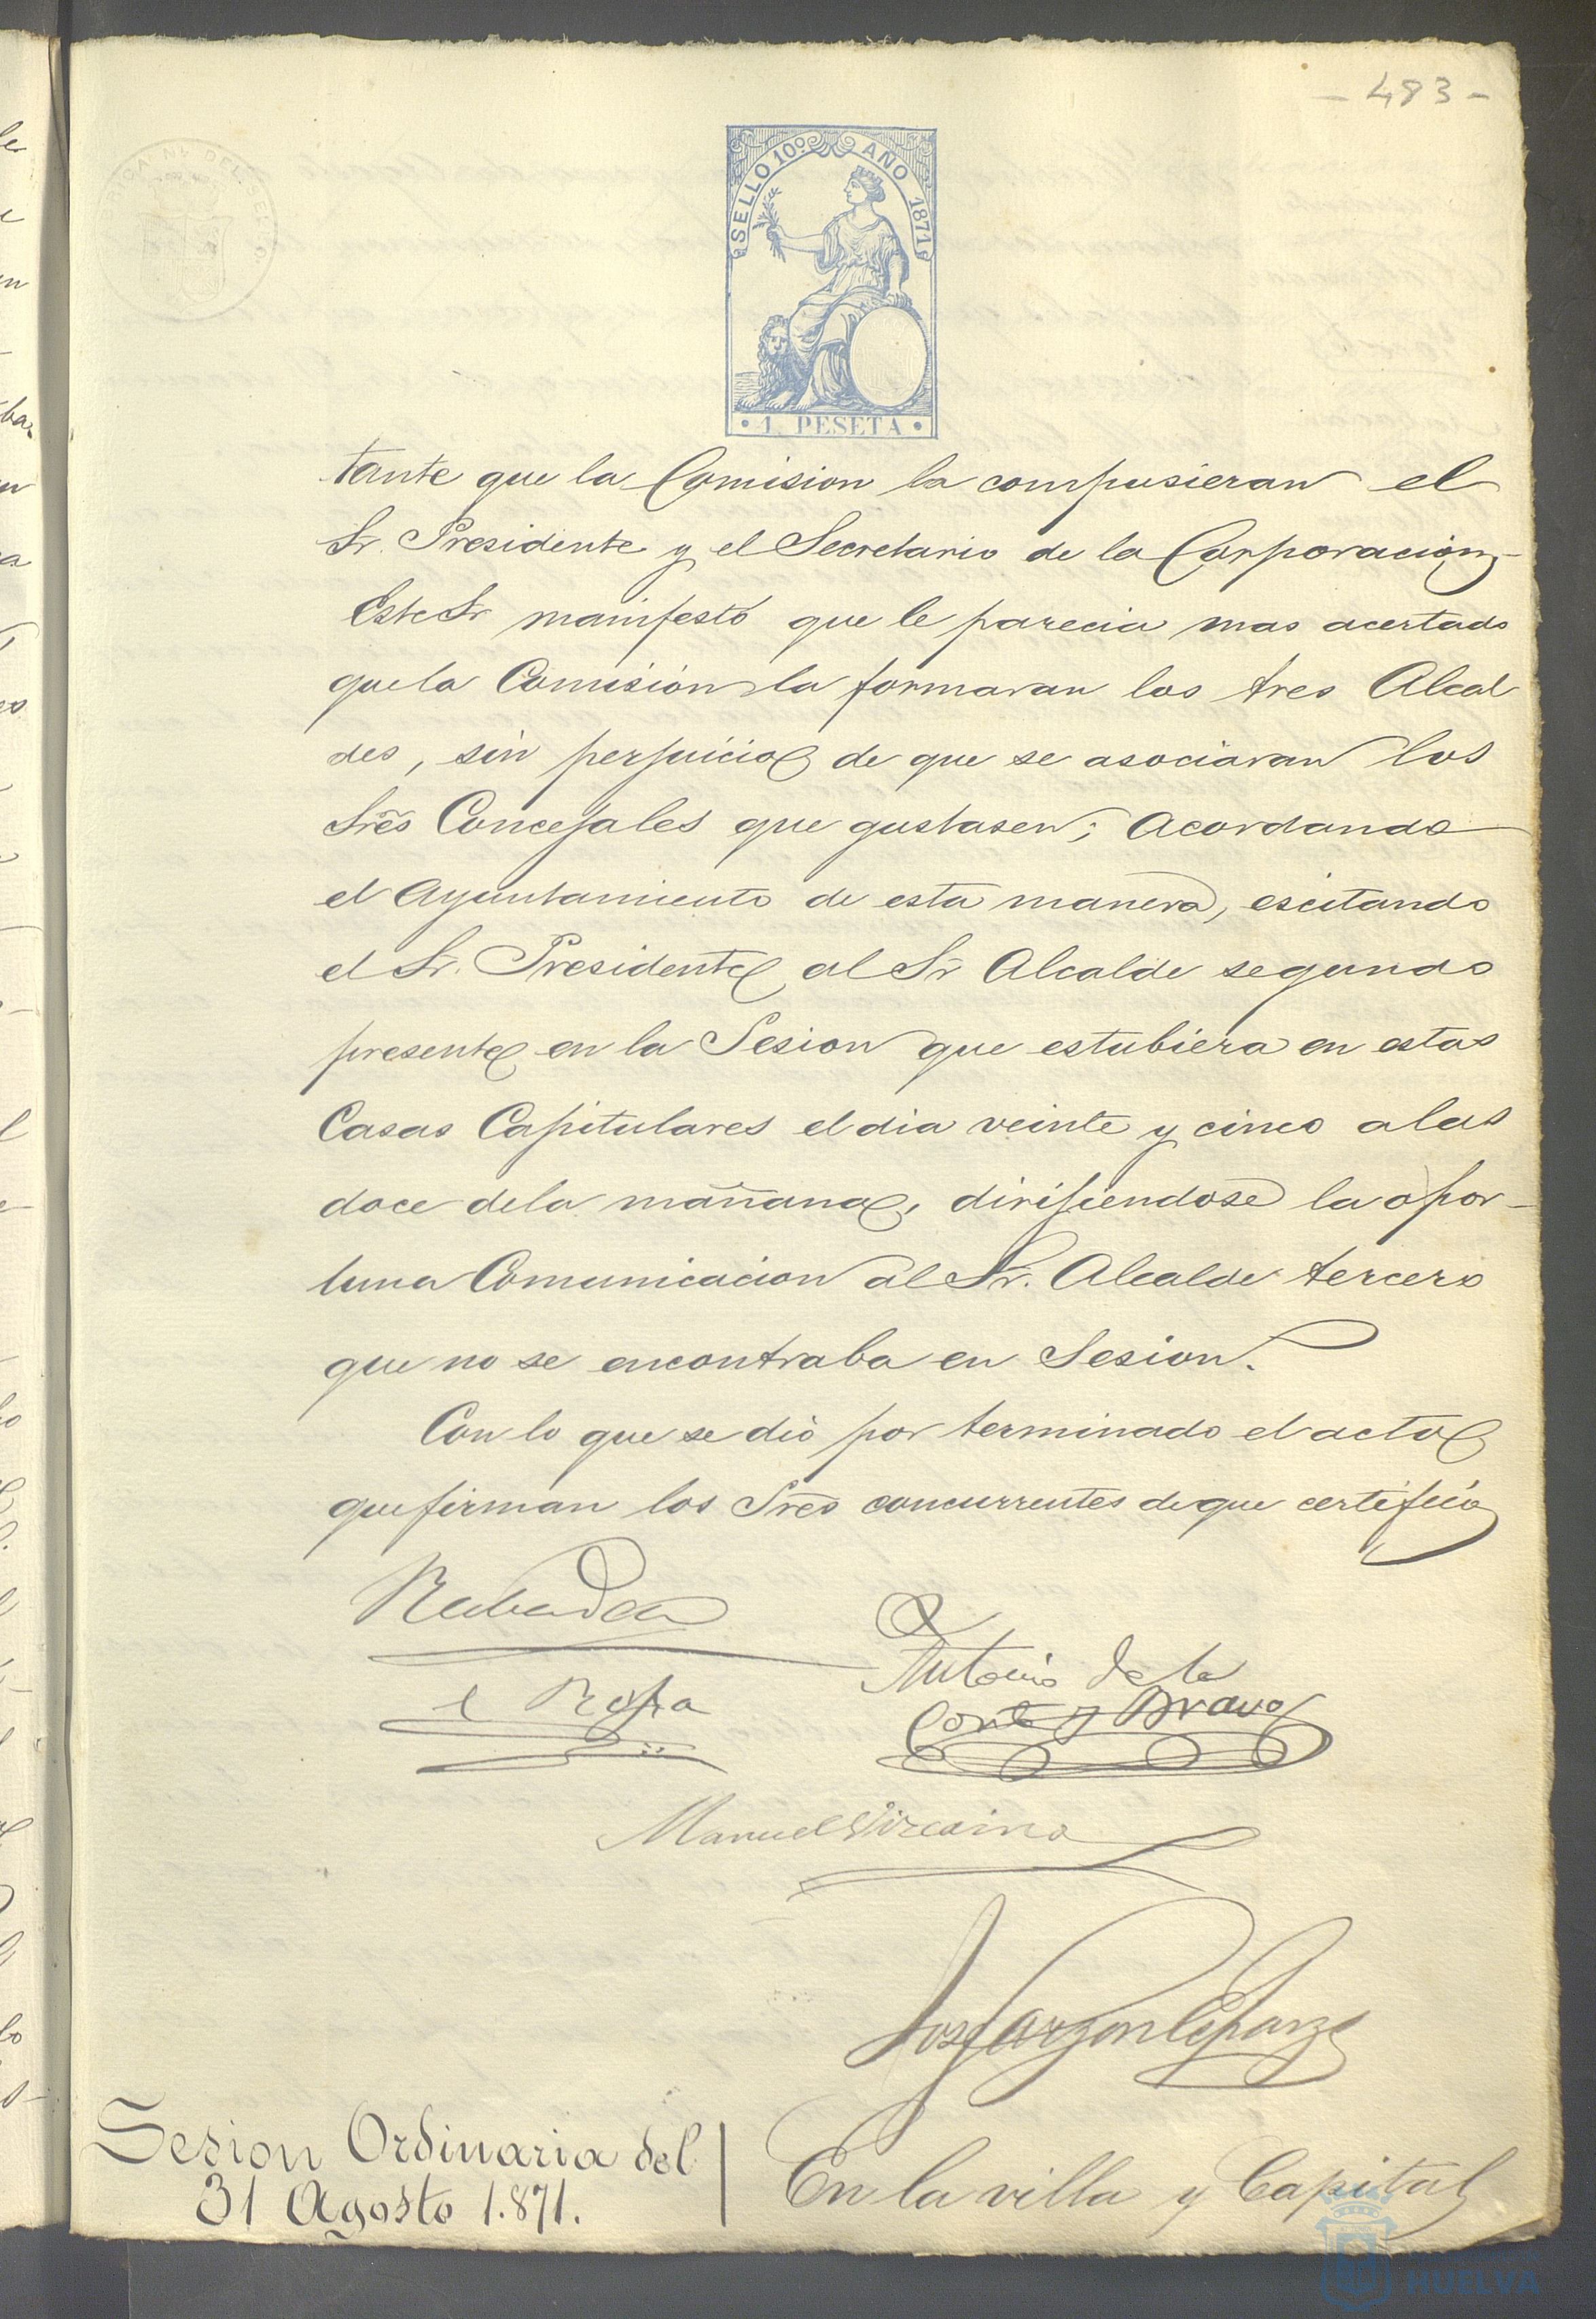 - 483 -
SELLO 10º AÑO 1871
1 PESETA
tante que la Comision la compusieran el
Sr. Presidente y el Secretario de la Corporacion,-
Este Sr manifestó que le parecia mas acertado
que la Comision la formaran los tres Alcal
des, sin perjuicio de que se asociaran los
Sres Concejales que gustasen; acordando
el Ayuntamiento de esta manera, escitando
el Sr. Presidente al Sr Alcalde segundo
presente en la Sesion que estubiera en estas
Casas Capitulares el dia veinte y cinco a las
doce dela mañana, dirijiendose la opor-
tuna Comunicacion al Sr. Alcalde tercero
que no se encontraba en Sesion.
Con lo que se dió por terminado el acto
que firman los Sres concurrentes de que certifico
Antonio de la
Corte y Bravo
Manuel Vizcaino
Sesion Ordinaria del
31 Agosto 1.871.
En la villa y Capital
HUELVA